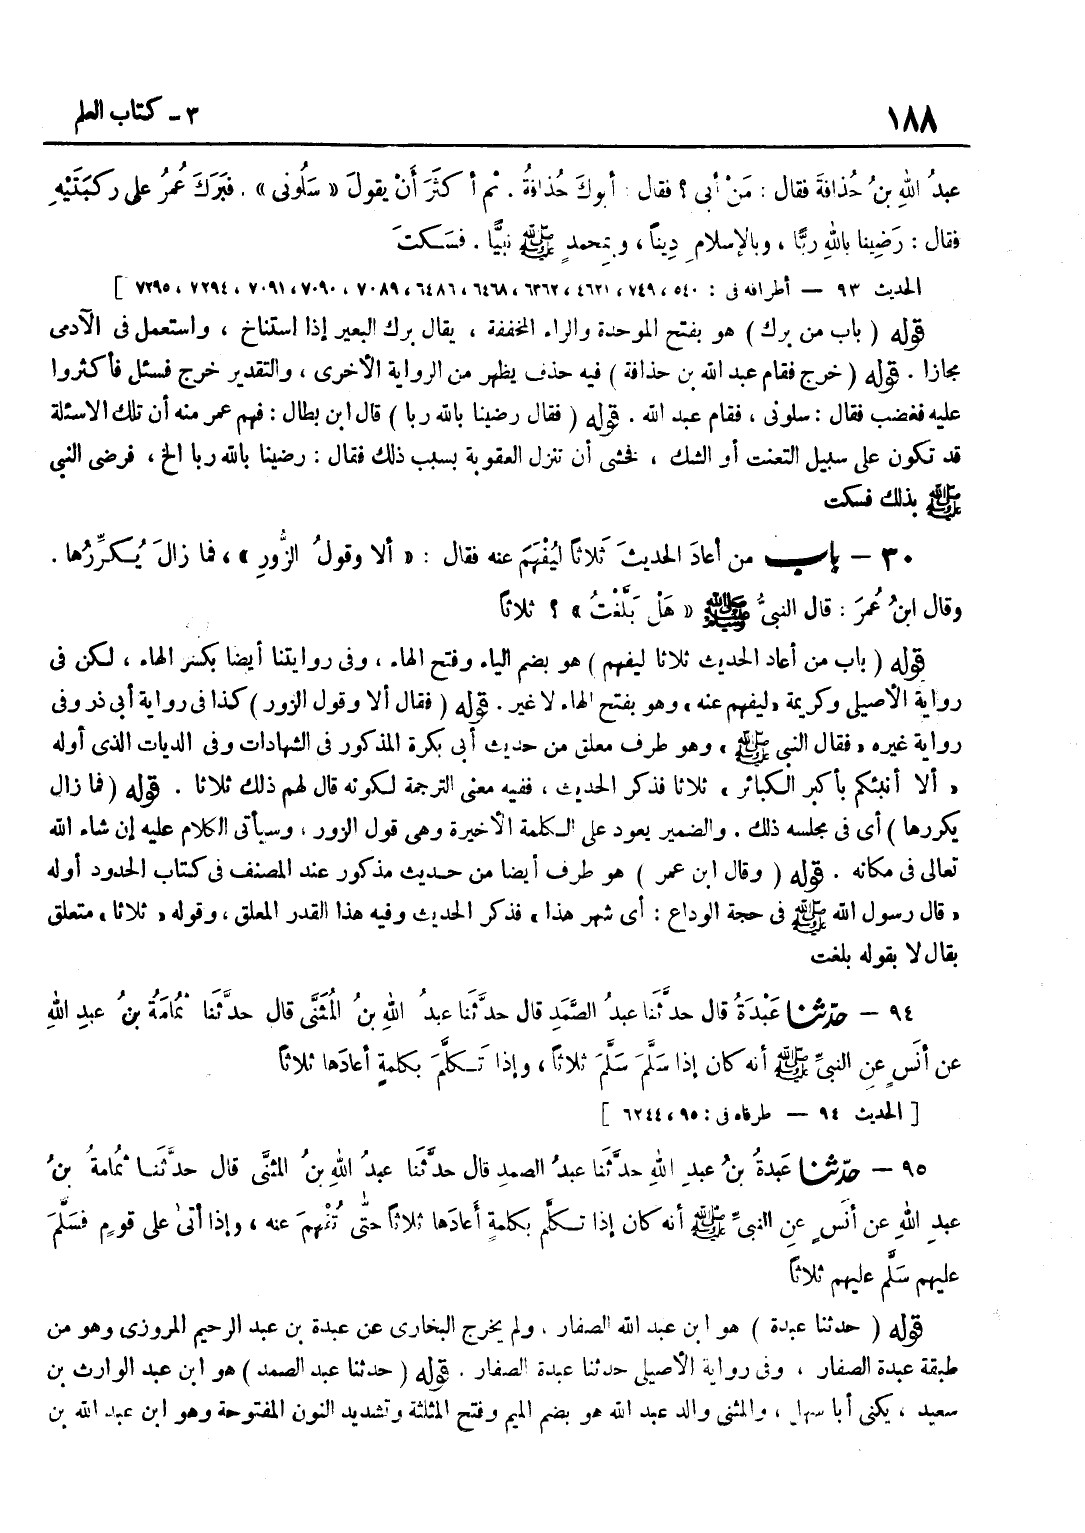 ١٨٨
٣ - كتاب العلم
عبدُ اللهِ بنُ حُذافةَ فقال : مَنْ أبى ؟ فقال : أبوكَ حُذافةُ . ثم أكثَرَ أَنْ يقولَ « سَلُونى » . فبَرَكَ عُمرُ على ركبَتَيْهِ
فقال : رَضِينا باللهِ ربًّا ، وبالإسلامِ دِيناً ، وبمحمدٍ ﷺ نبيًّا . فسَكتَ
الحديث ٩٣ — أطرافه فى : ٥٤٠ ، ٧٤٩ ، ٤٦٢١ ، ٦٣٦٢ ، ٦٤٦٨ ، ٦٤٨٦ ، ٧٠٨٩ ، ٧٠٩٠ ، ٧٠٩١ ، ٧٢٩٤ ، ٧٢٩٥ ]
قوله ( باب من برك ) هو بفتح الموحدة والراء المخففة ، يقال برك البعير إذا استناخ ، واستعمل فى الآدمى
مجازا . قوله ( خرج فقام عبد الله بن حذافة ) فيه حذف يظهر من الرواية الأخرى ، والتقدير خرج فسئل فأكثروا
عليه فغضب فقال : سلونى ، فقام عبد الله . قوله ( فقال رضينا بالله ربا ) قال ابن بطال : فهم عمر منه أن تلك الاسئلة
قد تكون على سبيل التعنت أو الشك ، فخشى أن تنزل العقوبة بسبب ذلك فقال : رضينا بالله ربا الخ ، فرضى النبي
ﷺ بذلك فسكت
٣٠ - باب من أعادَ الحديثَ ثَلاثاً ليُفْهَمَ عنه فقال : « ألا وقولُ الزُّورِ » ، فما زالَ يُكرِّرُها .
وقال ابنُ عُمرَ : قال النبىُّ ﷺ « هَلْ بَلَّغْتُ » ؟ ثلاثاً
قوله ( باب من أعاد الحديث ثلاثا ليفهم ) هو بضم الياء وفتح الهاء ، وفى روايتنا أيضا بكسر الهاء ، لكن فى
رواية الأصيلى وكريمة « ليفهم عنه » وهو بفتح الهاء لا غير . قوله ( فقال ألا وقول الزور ) كذا فى رواية أبى ذر وفى
رواية غيره « فقال النبى ﷺ » وهو طرف معلق من حديث أبى بكرة المذكور فى الشهادات وفى الديات الذى أوله
« ألا أنبئكم بأكبر الكبائر » ثلاثا فذكر الحديث ، ففيه معنى الترجمة لكونه قال لهم ذلك ثلاثا . قوله ( فما زال
يكررها ) أى فى مجلسه ذلك . والضمير يعود على الكلمة الأخيرة وهى قول الزور ، وسيأتى الكلام عليه إن شاء الله
تعالى فى مكانه . قوله ( وقال ابن عمر ) هو طرف أيضا من حديث مذكور عند المصنف فى كتاب الحدود أوله
« قال رسول الله ﷺ فى حجة الوداع : أى شهر هذا » فذكر الحديث وفيه هذا القدر المعلق ، وقوله « ثلاثا » متعلق
بقال لا بقوله بلغت
٩٤ - حدّثنا عَبْدَةُ قال حدَّثَنا عبدُ الصَّمَدِ قال حدَّثَنا عبدُ اللهِ بنُ المُثَنَّى قال حدَّثَنا ثُمَامَةُ بنُ عبدِ اللهِ
عن أنَسٍ عنِ النبىِّ ﷺ أنه كان إذا سَلَّمَ سَلَّمَ ثلاثاً ، وإذا تَكلَّمَ بكلمةٍ أعادَها ثلاثاً
[ الحديث ٩٤ — طرفاه فى : ٩٥ ، ٦٢٤٤ ]
٩٥ - حدّثنا عَبدةُ بنُ عبدِ اللهِ حدَّثَنا عبدُ الصمدِ قال حدَّثَنا عبدُ اللهِ بنُ المثنَّى قال حدَّثَنا ثُمامةُ بنُ
عبدِ اللهِ عن أنَسٍ عنِ النبىِّ ﷺ أنه كان إذا تكلَّم بكلمةٍ أعادَها ثلاثاً حتَّى تُفْهمَ عنه ، وإذا أتىٰ على قومٍ فسَلَّمَ
عليهم سَلَّم عليهم ثلاثاً
قوله ( حدثنا عبدة ) هو ابن عبد الله الصفار . ولم يخرج البخارى عن عبدة بن عبد الرحيم المروزى وهو من
طبقة عبدة الصفار ، وفى رواية الأصيلى حدثنا عبدة الصفار . قوله ( حدثنا عبد الصمد ) هو ابن عبد الوارث بن
سعيد ، يكنى أبا سهل ، والمثنى والد عبد الله هو بضم الميم وفتح المثلثة وتشديد النون المفتوحة وهو ابن عبد الله بن